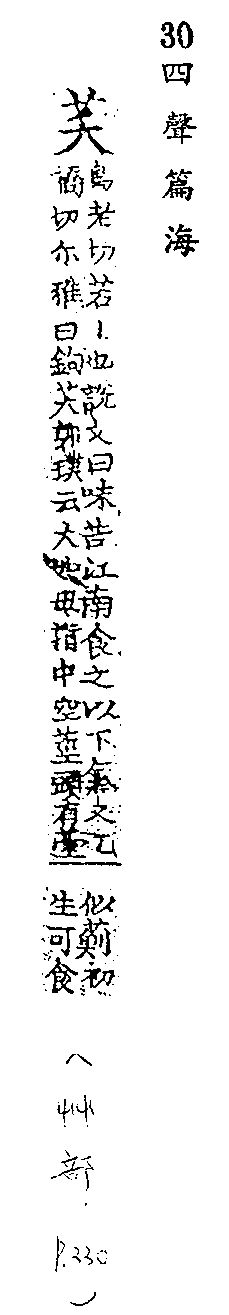 30四聲篇海
芺
烏老切若丨也說文曰味苦江南食之以下氣文乙
矯切尔雅曰鉤芺郭璞云大如毋指中空莖頭有薹
似薊初
生可食
(艸部.P.330)